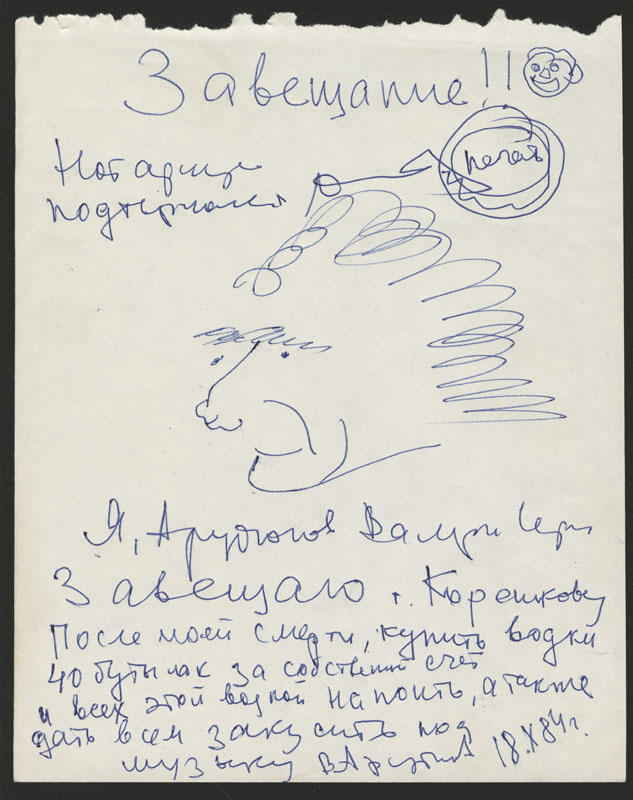 Завещание!!
печать
Нотариус
подтержает
Я, Арутюнов Валери
Завещаю т. Корешкову
После моей смерти, купить водки
40 бутылок за собственный счёт
и всех этой водкой напоить, а также
дать всем закусить под
музыку ВАрутюнов 18.X 84г.